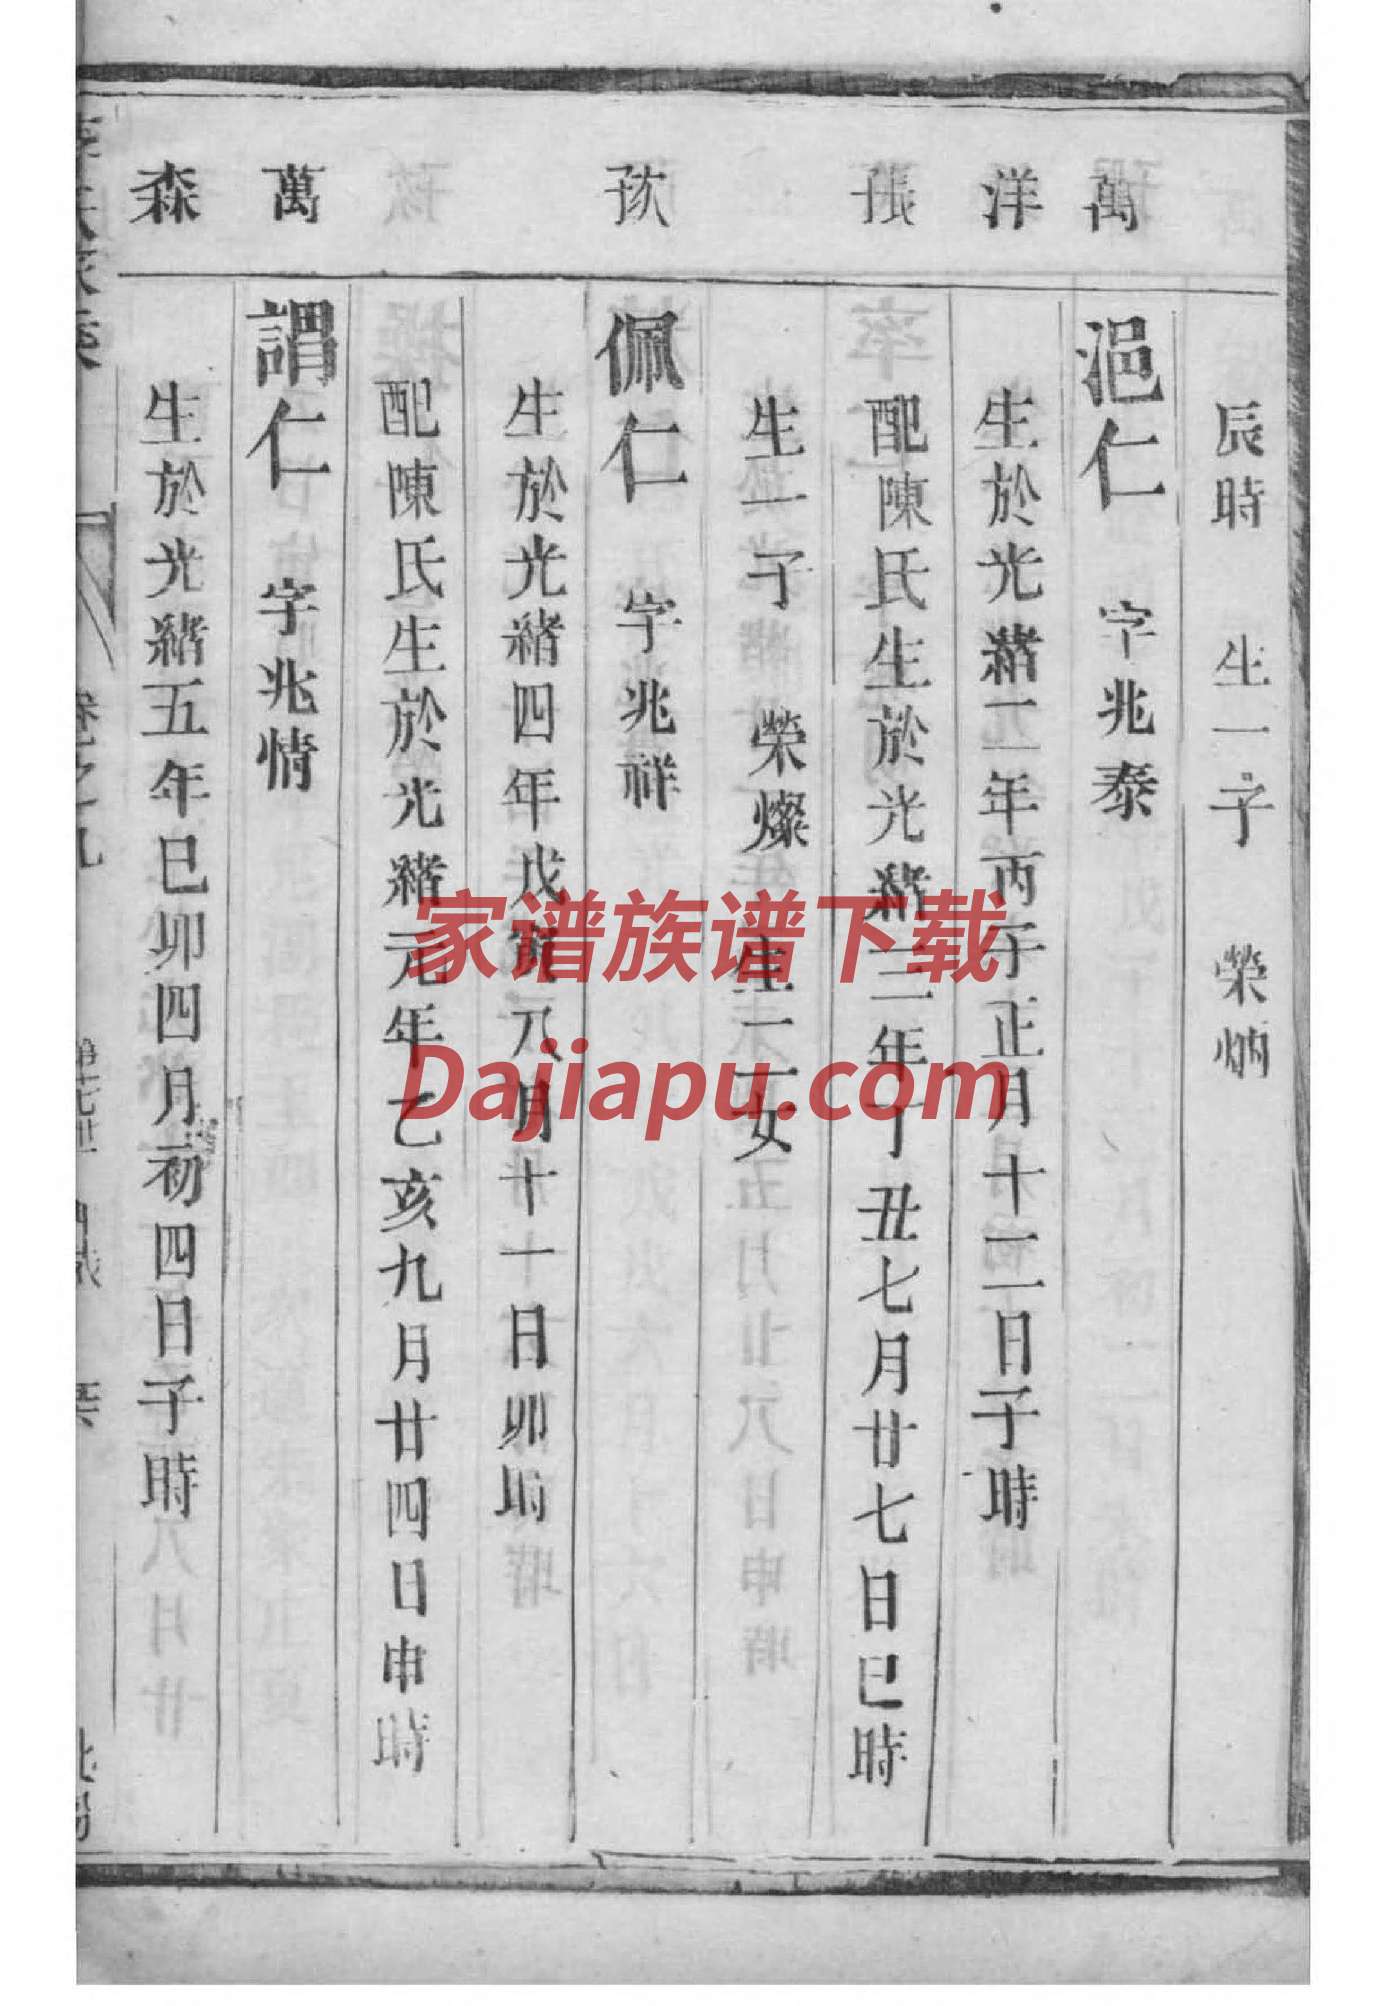 辰時　生一子　榮炳
萬
浥仁　字兆泰
洋
生於光緒二年丙子正月十二日子時
配陳氏生於光緒三年丁丑七月廿七日巳時
生一子　榮燦　生一女
佩仁　字兆祥
生於光緒四年戊寅八月十一日卯時
配陳氏生於光緒元年乙亥九月廿四日申時
萬
謂仁　字兆情
森
生於光緒五年巳卯四月初四日子時
卷之九
家谱族谱下载
Dajiapu.com